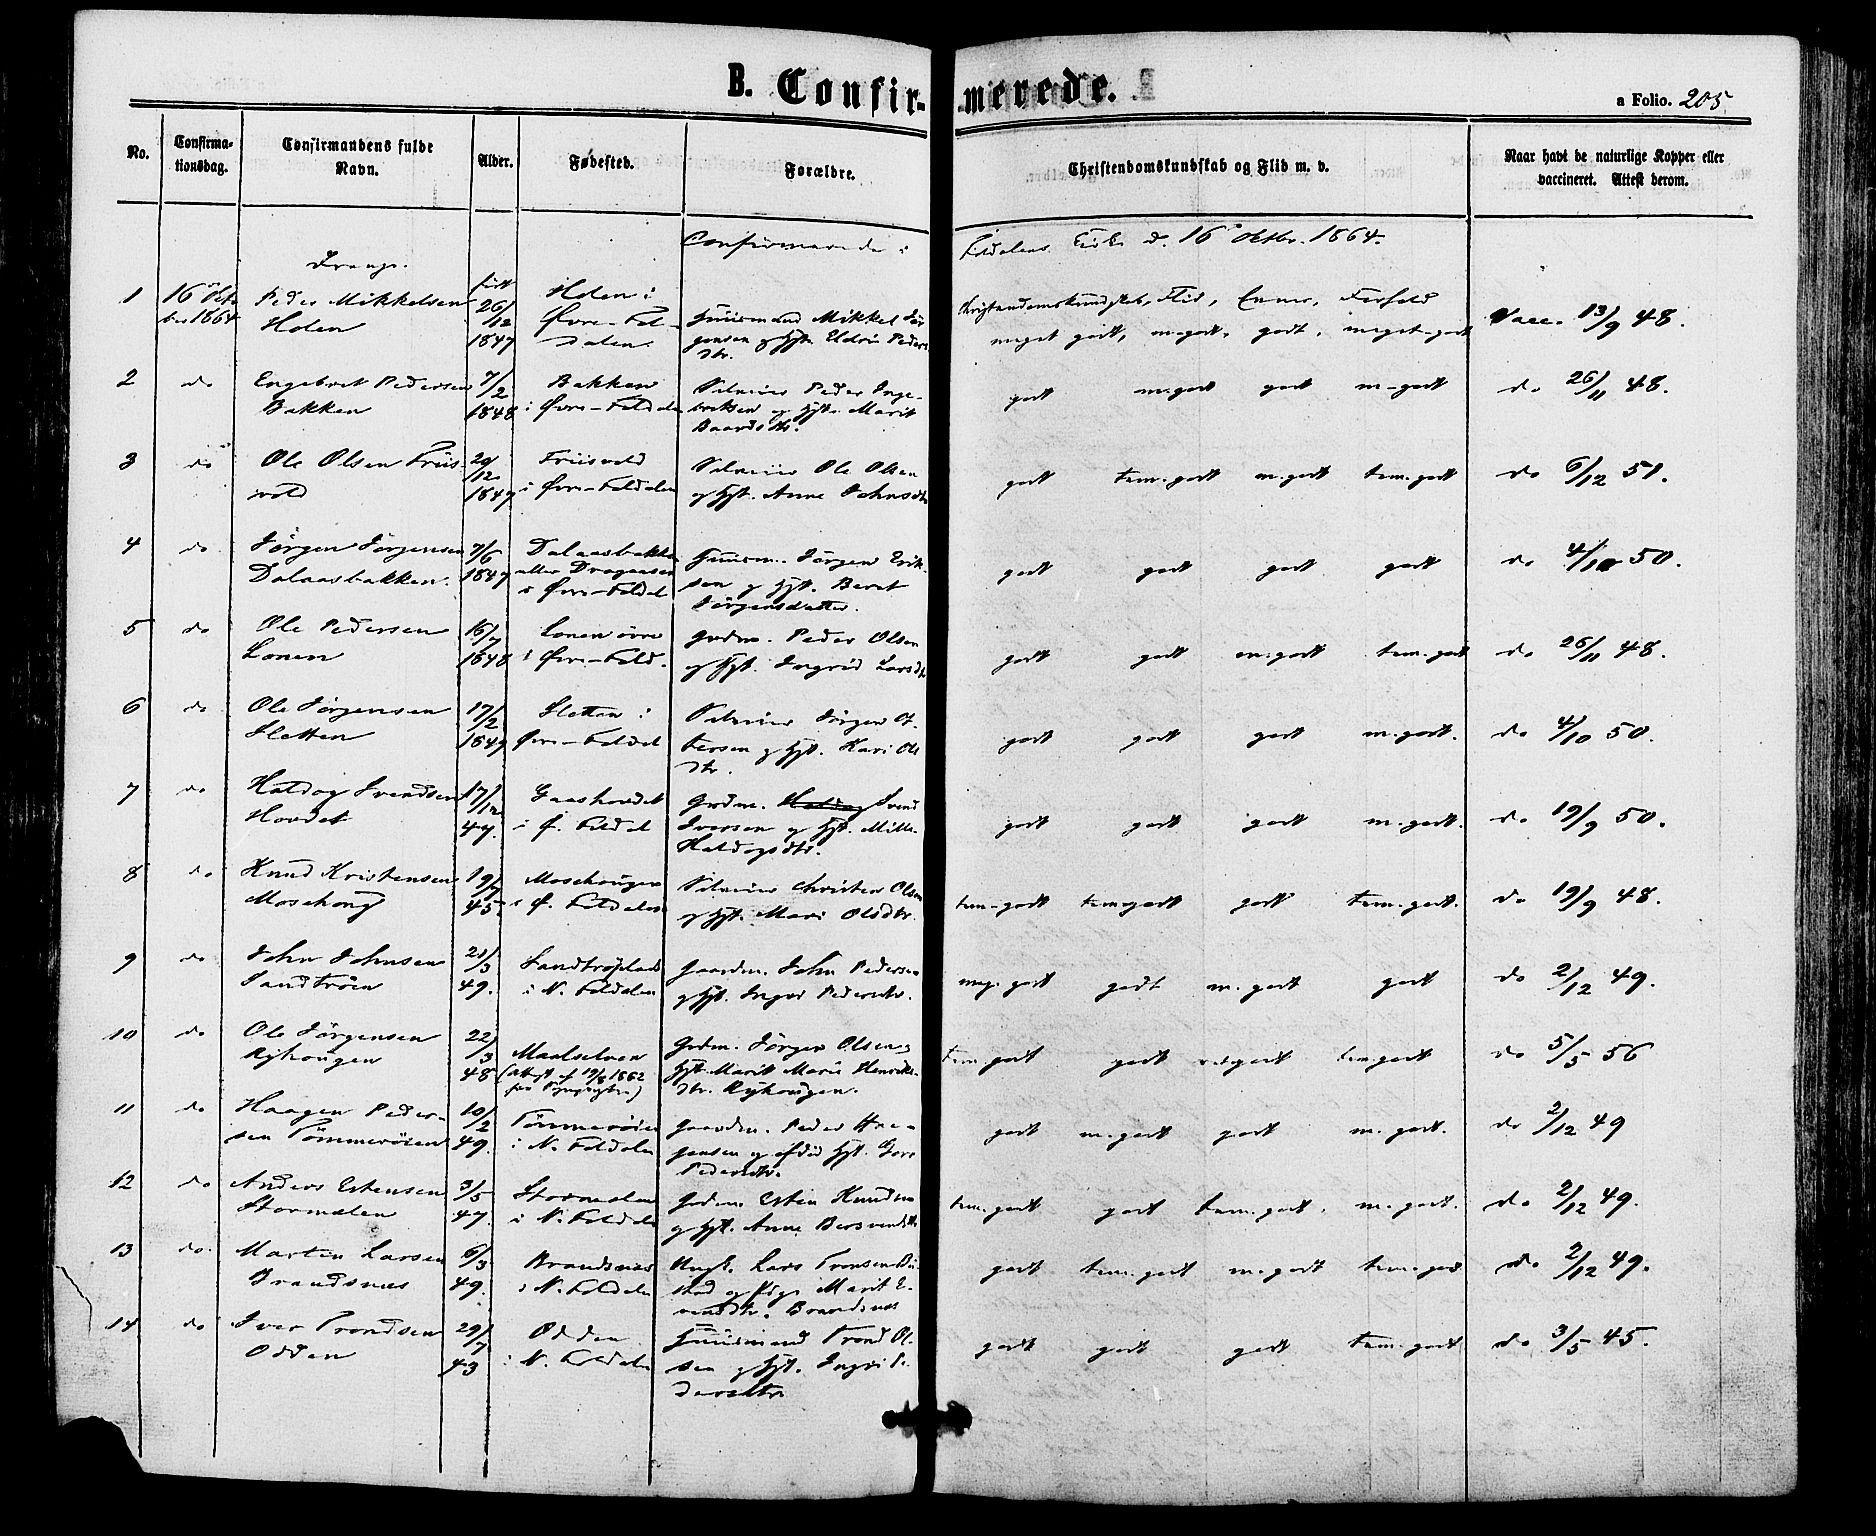 B. Confirmerede.
a Folio. 205.
No.
Confirma-
tionsdag.
Confirmandens fulde
Navn.
Alder.
Fødested.
Forældre.
Christendomskundskab og Flid m. v.
Naar havt de naturlige Kopper eller
vaccineret. Attest derom.
Confirmerede i Foldalens Kirke d. 16 Oktbr. 1864.
Drenge.
1 16 Octo
ber 1864
Peder Mikkelsen
Holen
født
26/12
1847
Holen i
Øvre-Fol-
dalen
Huusmand Mikkel Jør
gensen og Hst. Eldri Peders
dtr.
Christendomskundskab, Flid, Evner, Forhold
meget godt, m. godt, godt, meget-godt
Vacc. 13/9 48.
2 do Engebret Pedersen
Bakken
7/2
1848
Bakken
i Øvre-Foldalen
Selveier Peder Inge-
briktsen og Hst. Marit
Baardsdtr.
godt m-godt godt m-godt
do 26/11 48.
3 do Ole Olsen Friis-
vold
20/12
1847
Friisvold
i Øvre-Foldalen
Selveier Ole Olsen
og Hst. Anne Johnsdtr
godt tem. godt m. godt tem. godt
do 6/12 51.
4 do Jørgen Jørgensen
Dalaasbakken.
7/6
1847
Dalaasbakken
eller Dragaasen
i Øvre-Foldal
Huusm. Jørgen Erik-
sen og Hst. Beret
Jørgensdatter.
godt godt godt godt
do 4/10 50.
5 do Ole Pedersen
Lonen
16/7
1848
Lonen øvre
i Øvre-Fold.
Grdm. Peder Olsen
og Hst. Ingrid Larsdtr
godt godt m. godt tem. godt
do 26/11 48.
6 do Ole Jørgensen
Sletten
17/2
1849
Sletten i
Øvre-Foldal
Selveier Jørgen Ot-
tersen og Hst. Kari Ols
dtr.
godt godt godt m. godt.
do 4/10 50.
7 do Haldog Svendsen
Hovdet
17/12
47.
Gaashovdet
i Ø. Foldal
Grdm. Haldog Svend
Iversen og Hst. Mille
Haldogsdtr.
godt godt godt m. godt.
do 19/9 50.
8 do Knud Kristensen
Mosehoug
19/7
45.
Mosehougen
i Ø. Foldalen
Selveier Christen Olsen
og Hst. Mari Olsdtr.
tem-godt tem godt godt tem. godt.
do 19/9 48.
9 do John Johnsen
Sandtrøen
21/3
49.
Sandtrøplads
i N. Foldalen
Gaardm. John Pedersen
og Hst. Inger Pedersdtr.
meg. godt godt m. godt godt
do 2/12 49.
10 do Ole Jørgensen
Ryhougen
22/3
48
Maalselven
(Attest af 19/8 1862
fra Sognepresten)
Grdm. Jørgen Olsen og
Hst. Marit Marie Henriks-
dtr. Ryhougen.
tem. godt godt godt tem. godt
do 5/5 56
11 do Haagen Peder-
sen Tømmerøien
10/2
49.
Tømmerøien
i N. Foldalen
Gaardm. Peder Haa-
gensen og afdød Hst. Goro
Pedersdtr.
godt m. godt godt m. godt.
do 2/12 49
12 do Anders Estensen
Stormælen
3/5
47.
Stormælen
i N. Foldalen
Grdm. Esten Knudsen
og Hst. Anne Bersvendsdtr
tem. godt godt tem. godt. m. godt.
do 2/12 49.
13 do. Morten Larsen
Brandsnæs
6/3
49.
Brandsnæs
i N. Foldalen
Ungk. Lars Tronsen
og Pige Marit
Brandsnæs
godt tem. godt m. godt tem. godt
do 2/12 49.
14 do Iver Trondsen
Odden
29/7
43
Odden
i N. Foldalen
Huusmand Trond Ol-
sen og Hst. Ingri Pe-
dersdtr
godt godt godt tem. godt
do 3/5 45.